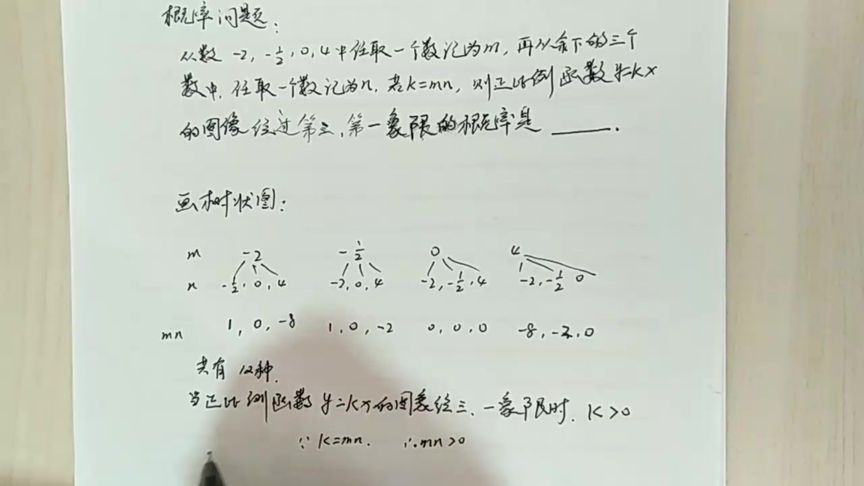 概率问题:
从数 -2, -1/2, 0, 4 中任取一个数记为m, 再从余下的三个
数中, 任取一个数记为n, 若k=mn, 则正比例函数 y=kx
的图像经过第三、第一象限的概率是 ______.
画树状图:
m -2 -1/2 0 4
n -1/2, 0, 4 -2, 0, 4 -2, -1/2, 4 -2, -1/2 0
mn 1, 0, -8 1, 0, -2 0, 0, 0 -8, -2, 0
共有 12种.
当正比例函数 y=kx的图象经三、一象限时, K>0
∵ k=mn. ∴mn>0